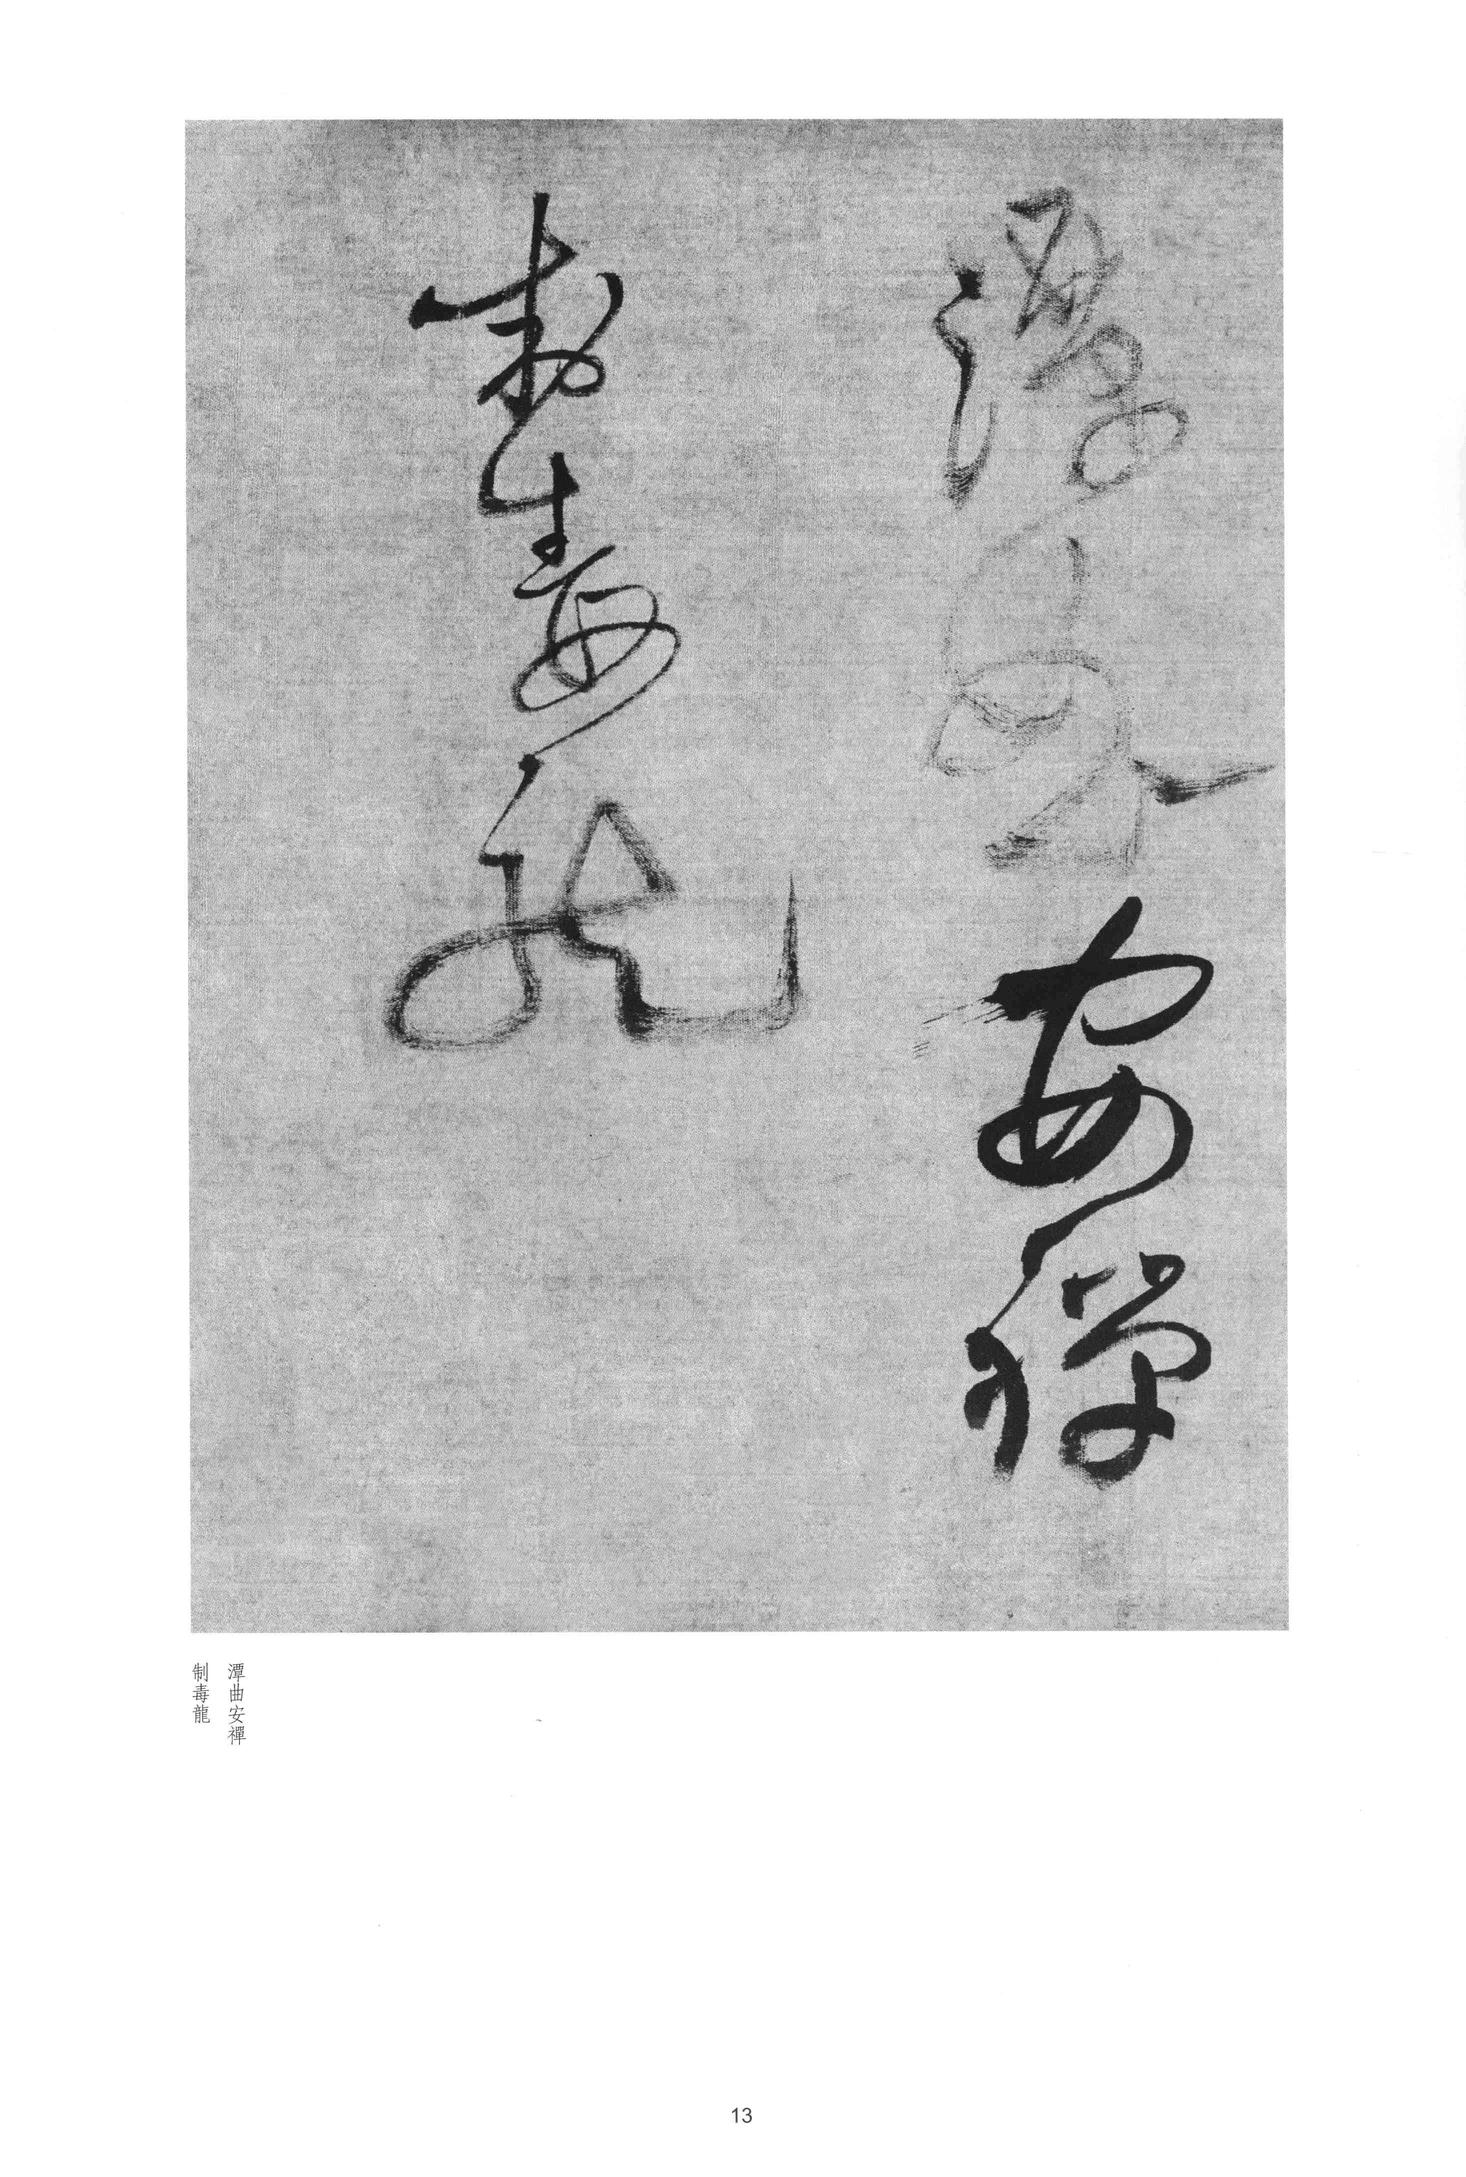 潭曲安禪
制毒龍
潭曲安禪
制毒龍
13